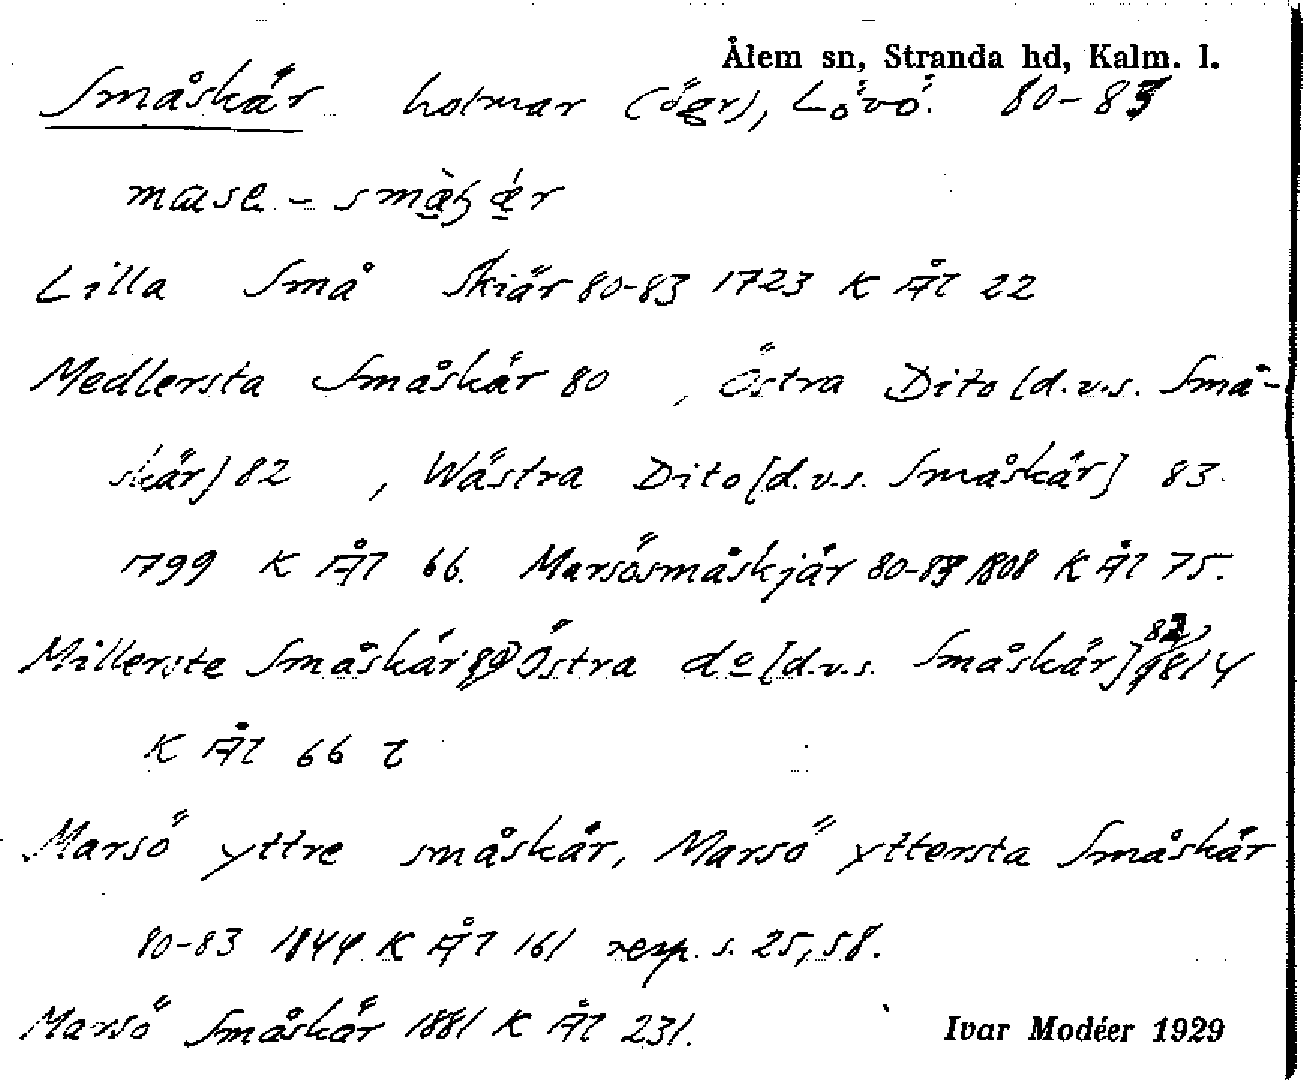 Ålem sn, Stranda hd, Kalm. l.
Småskär holmar (ögr), Lövö. 80-83
mask -
Lilla Små Skiär 80-83 1723 K Ål 22
Medlersta Småskär 80, Östra Dito [d.v.s. Små-
skär] 82, Wästra Dito [d.v.s. Småskär] 83.
1799 K Ål 66. Marsösmåskjär 80-83 1808 K Ål 75.
Millerste Småskär Östra do [d.v.s. Småskär] 82 1814
K Ål 66 b
Marsö yttre småskär, Marsö yttersta Småskär
80-83 1844 K Ål 161 resp. s. 25, 58.
Marsö Småskär 1881 K Ål 231.
Ivar Modéer 1929